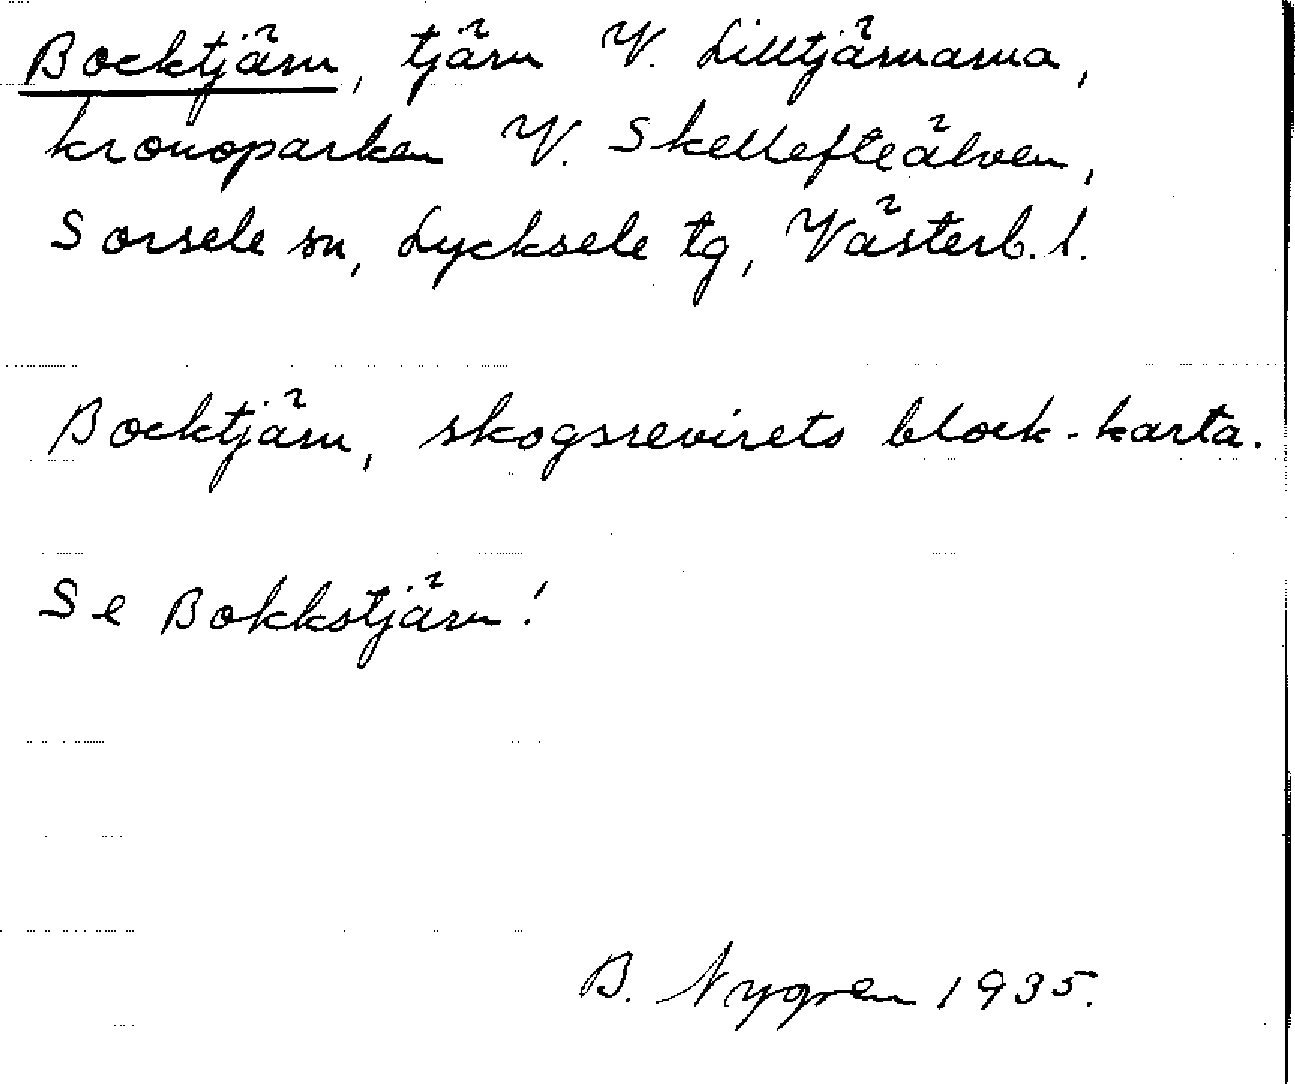 Bocktjärn, tjärn V. Lilltjärnarna,
kronoparken V. Skellefteälven,
Sorsele sn, Lycksele tg, Västerb. l.
Bocktjärn, skogsrevirets block-karta.
Se Bokkstjärn!
B. Nygren 1935.